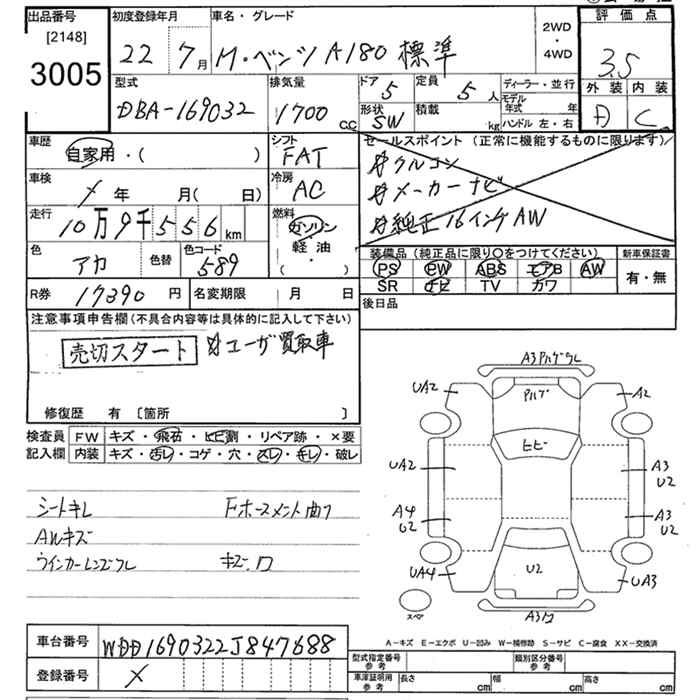 出品番号
[2148]
3005
初度登録年月
22年 7月
車名・グレード
M・ベンツ A180 標準
2WD
・
4WD
評価点
3.5
外装 内装
D C
型式
DBA-169032
排気量
1700 CC
ドア 5
形状 SW
定員 5人
積載 kg
ディーラー・並行
モデル年式 年
ハンドル 左・右
車歴
自家用・( )
シフト
FAT
セールスポイント(正常に機能するものに限ります)
クルコン
メーカーナビ
純正16インチAW
車検
メ 年 月( 日)
冷房
AC
走行
10万9千556km
燃料
ガソリン
軽油
( ・ )
色
アカ
色替
色コード
589
装備品(純正品に限り○をつけてください)
PS PW ABS エアB AW
SR ナビ TV カワ
新車保証書
有・無
R券 17390円
名変期限 月 日
後日品
注意事項申告欄(不具合内容等は具体的に記入して下さい)
売切スタート ユーザ買取車
修復歴 有 〔箇所 〕
検査員 FW キズ・飛石・ヒビ割・リペア跡・×要
記入欄 内装 キズ・汚レ・コゲ・穴・スレ・キレ・破レ
シートキレ Fホースメント曲り
AWキズ
ウインカーレンズワレ
A3
UA2 A2
ヒビ
UA2 A3 U2
A4 U2 A3 U2
UA4 U2 UA3
スペア
A-キズ E-エクボ U-凹み W-補修跡 S-サビ C-腐食 XX-交換済
車台番号 WDD1690322J847688
登録番号 メ
型式指定番号 参考
類別区分番号 参考
車庫証明用 参考 長さ cm 幅 cm 高さ cm